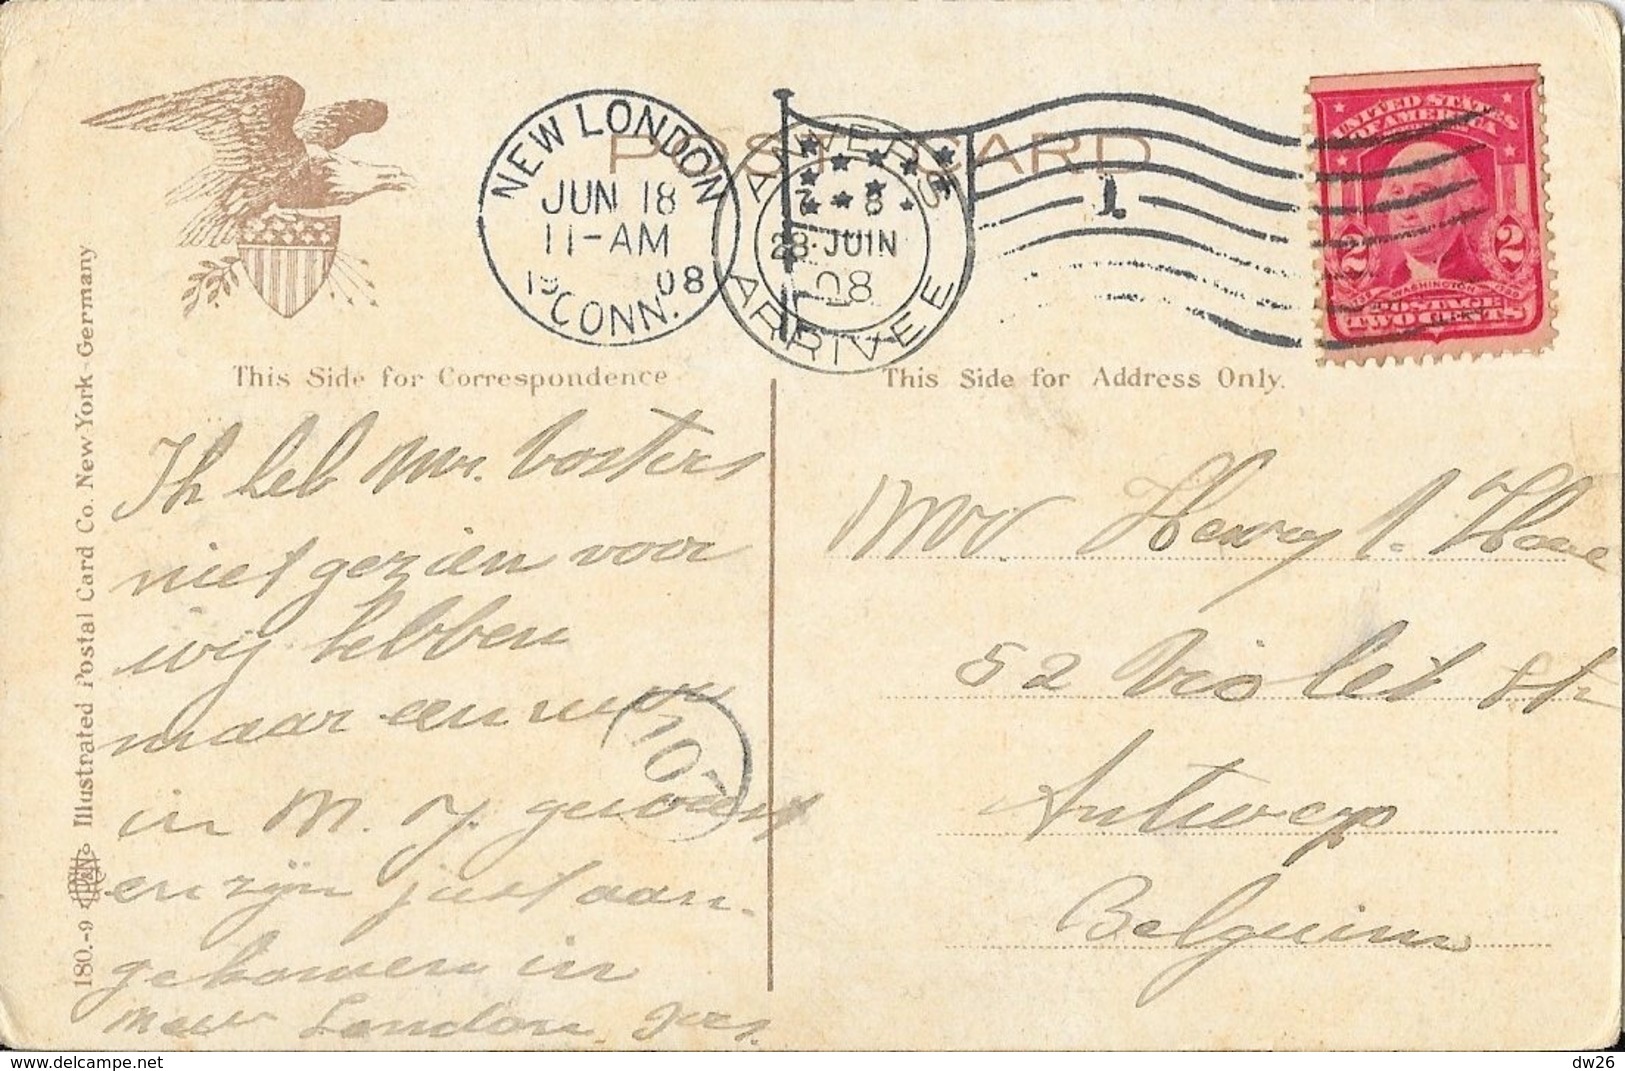 POST CARD
NEW LONDON
JUN 18
11-AM
19 08
CONN.
ANVERS
7-8
28·JUIN
08
ARRIVEE
1
UNITED STATES
OF AMERICA
2 2
WASHINGTON
POSTAGE
TWO CENTS
This Side for Correspondence
This Side for Address Only.
180.-9 Illustrated Postal Card Co. New York-Germany
Ik heb Mr. Vosters
niet gezien voor
wij hebben
maar een uur
in N. Y. geweest
en zijn just aan-
gekomen in
New London. Jos.
107
Mr Henry
52 Violet Str
Antwerp
Belguim
dw26